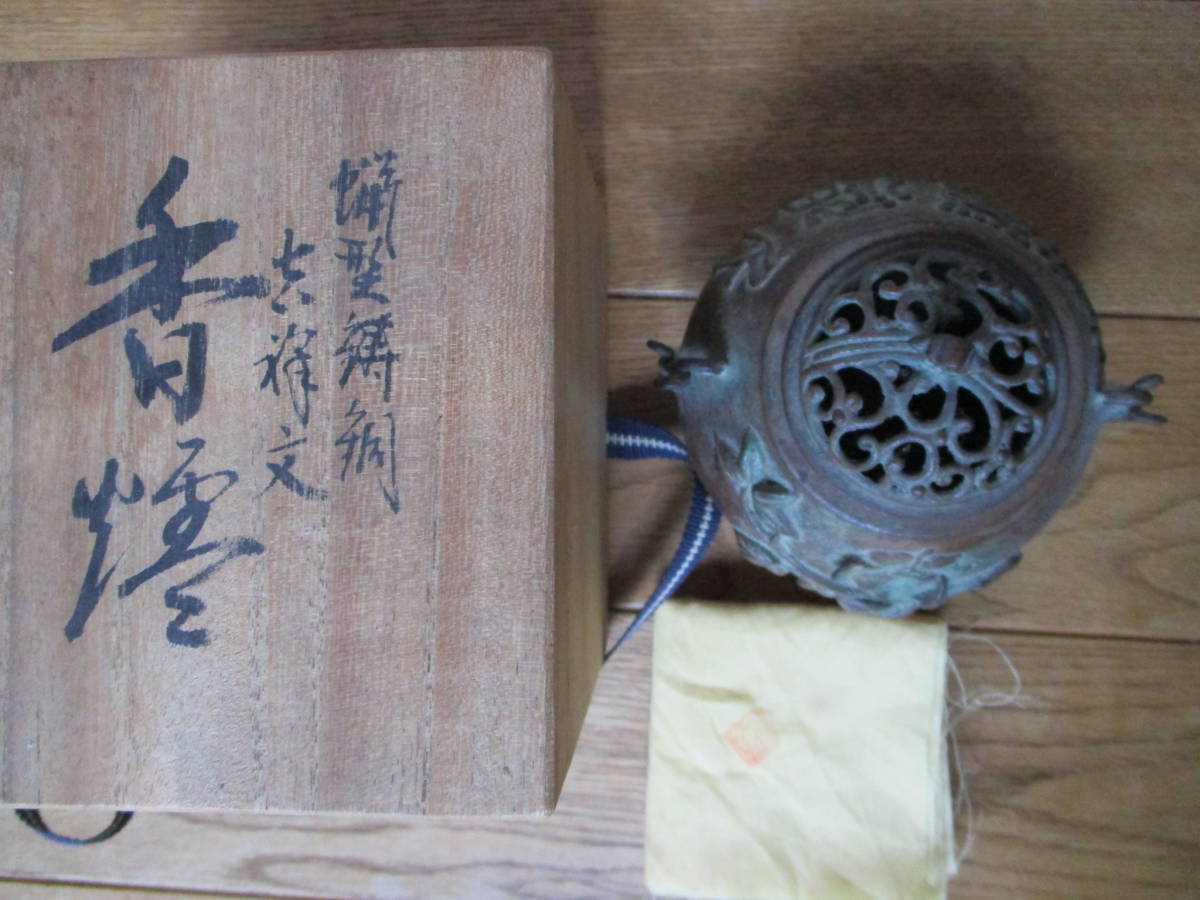 蝋型鋳銅
吉祥文
香炉